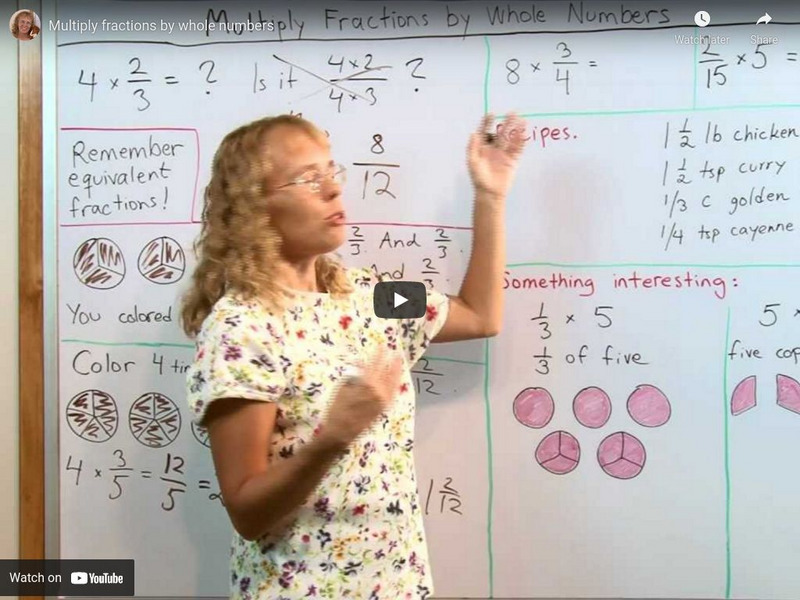 Multiply Fractions by Whole Numbers
Multiply fractions by whole numbers
Watch later
Share
4 × 2/3 = ? Is it 4×2/4×3 ?
8 × 3/4 =
2/15 × 5 =
Remember
equivalent
fractions!
8/12
Recipes.
1 1/2 lb chicken
1 1/2 tsp curry
1/3 c golden
1/4 tsp cayenne
2/3. And 2/3.
And 2/3.
You colored
Something interesting:
1/3 × 5
1/3 of five
5
five cop
Color 4 tim
2/12.
4 × 3/5 = 12/5 =
1 2/12
Watch on YouTube